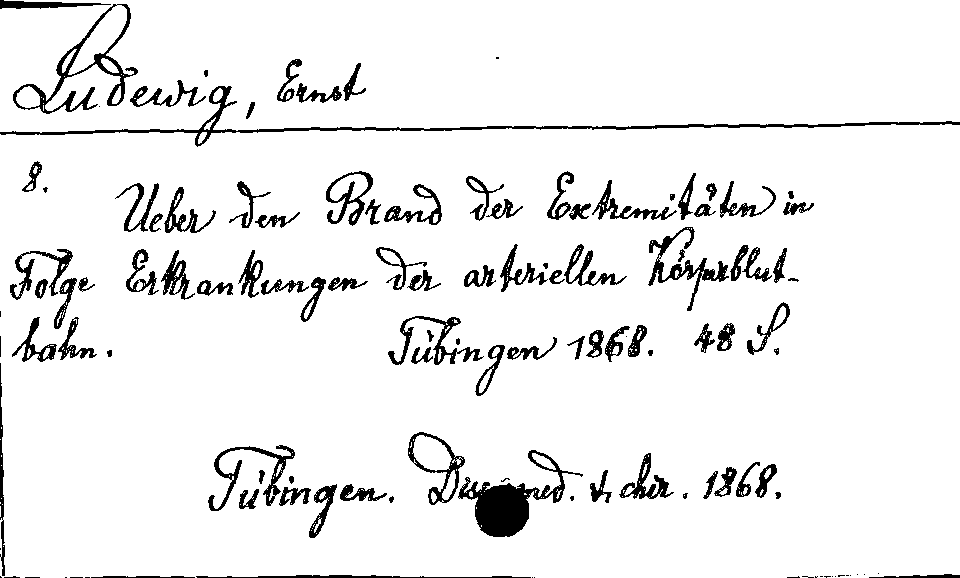 Ludewig, Ernst
8.
Ueber den Brand der Extremitäten in
Folge Erkrankungen der arteriellen Körperblut-
bahn. Tübingen 1868. 48 S.
Tübingen. Diss. med. &. chir. 1868.